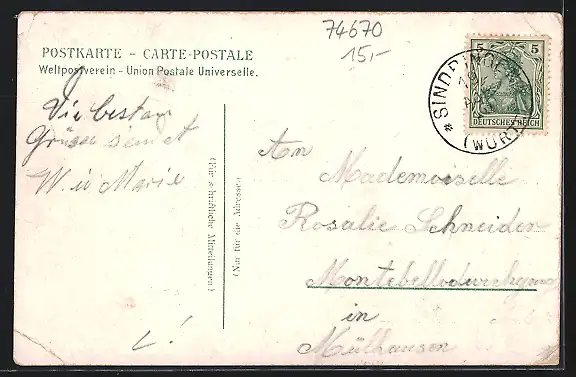 74670
15,-
POSTKARTE – CARTE-POSTALE
Weltpostverein – Union Postale Universelle.
5 5
DEUTSCHES REICH
* SINDRINGEN
(WÜRT
Die besten
Grüsse sendet
W. u Marie
(Für schriftliche Mitteilungen)
(Nur für die Adresse.)
An
Mademoiselle
Rosalie Schneider
in
Mülhausen